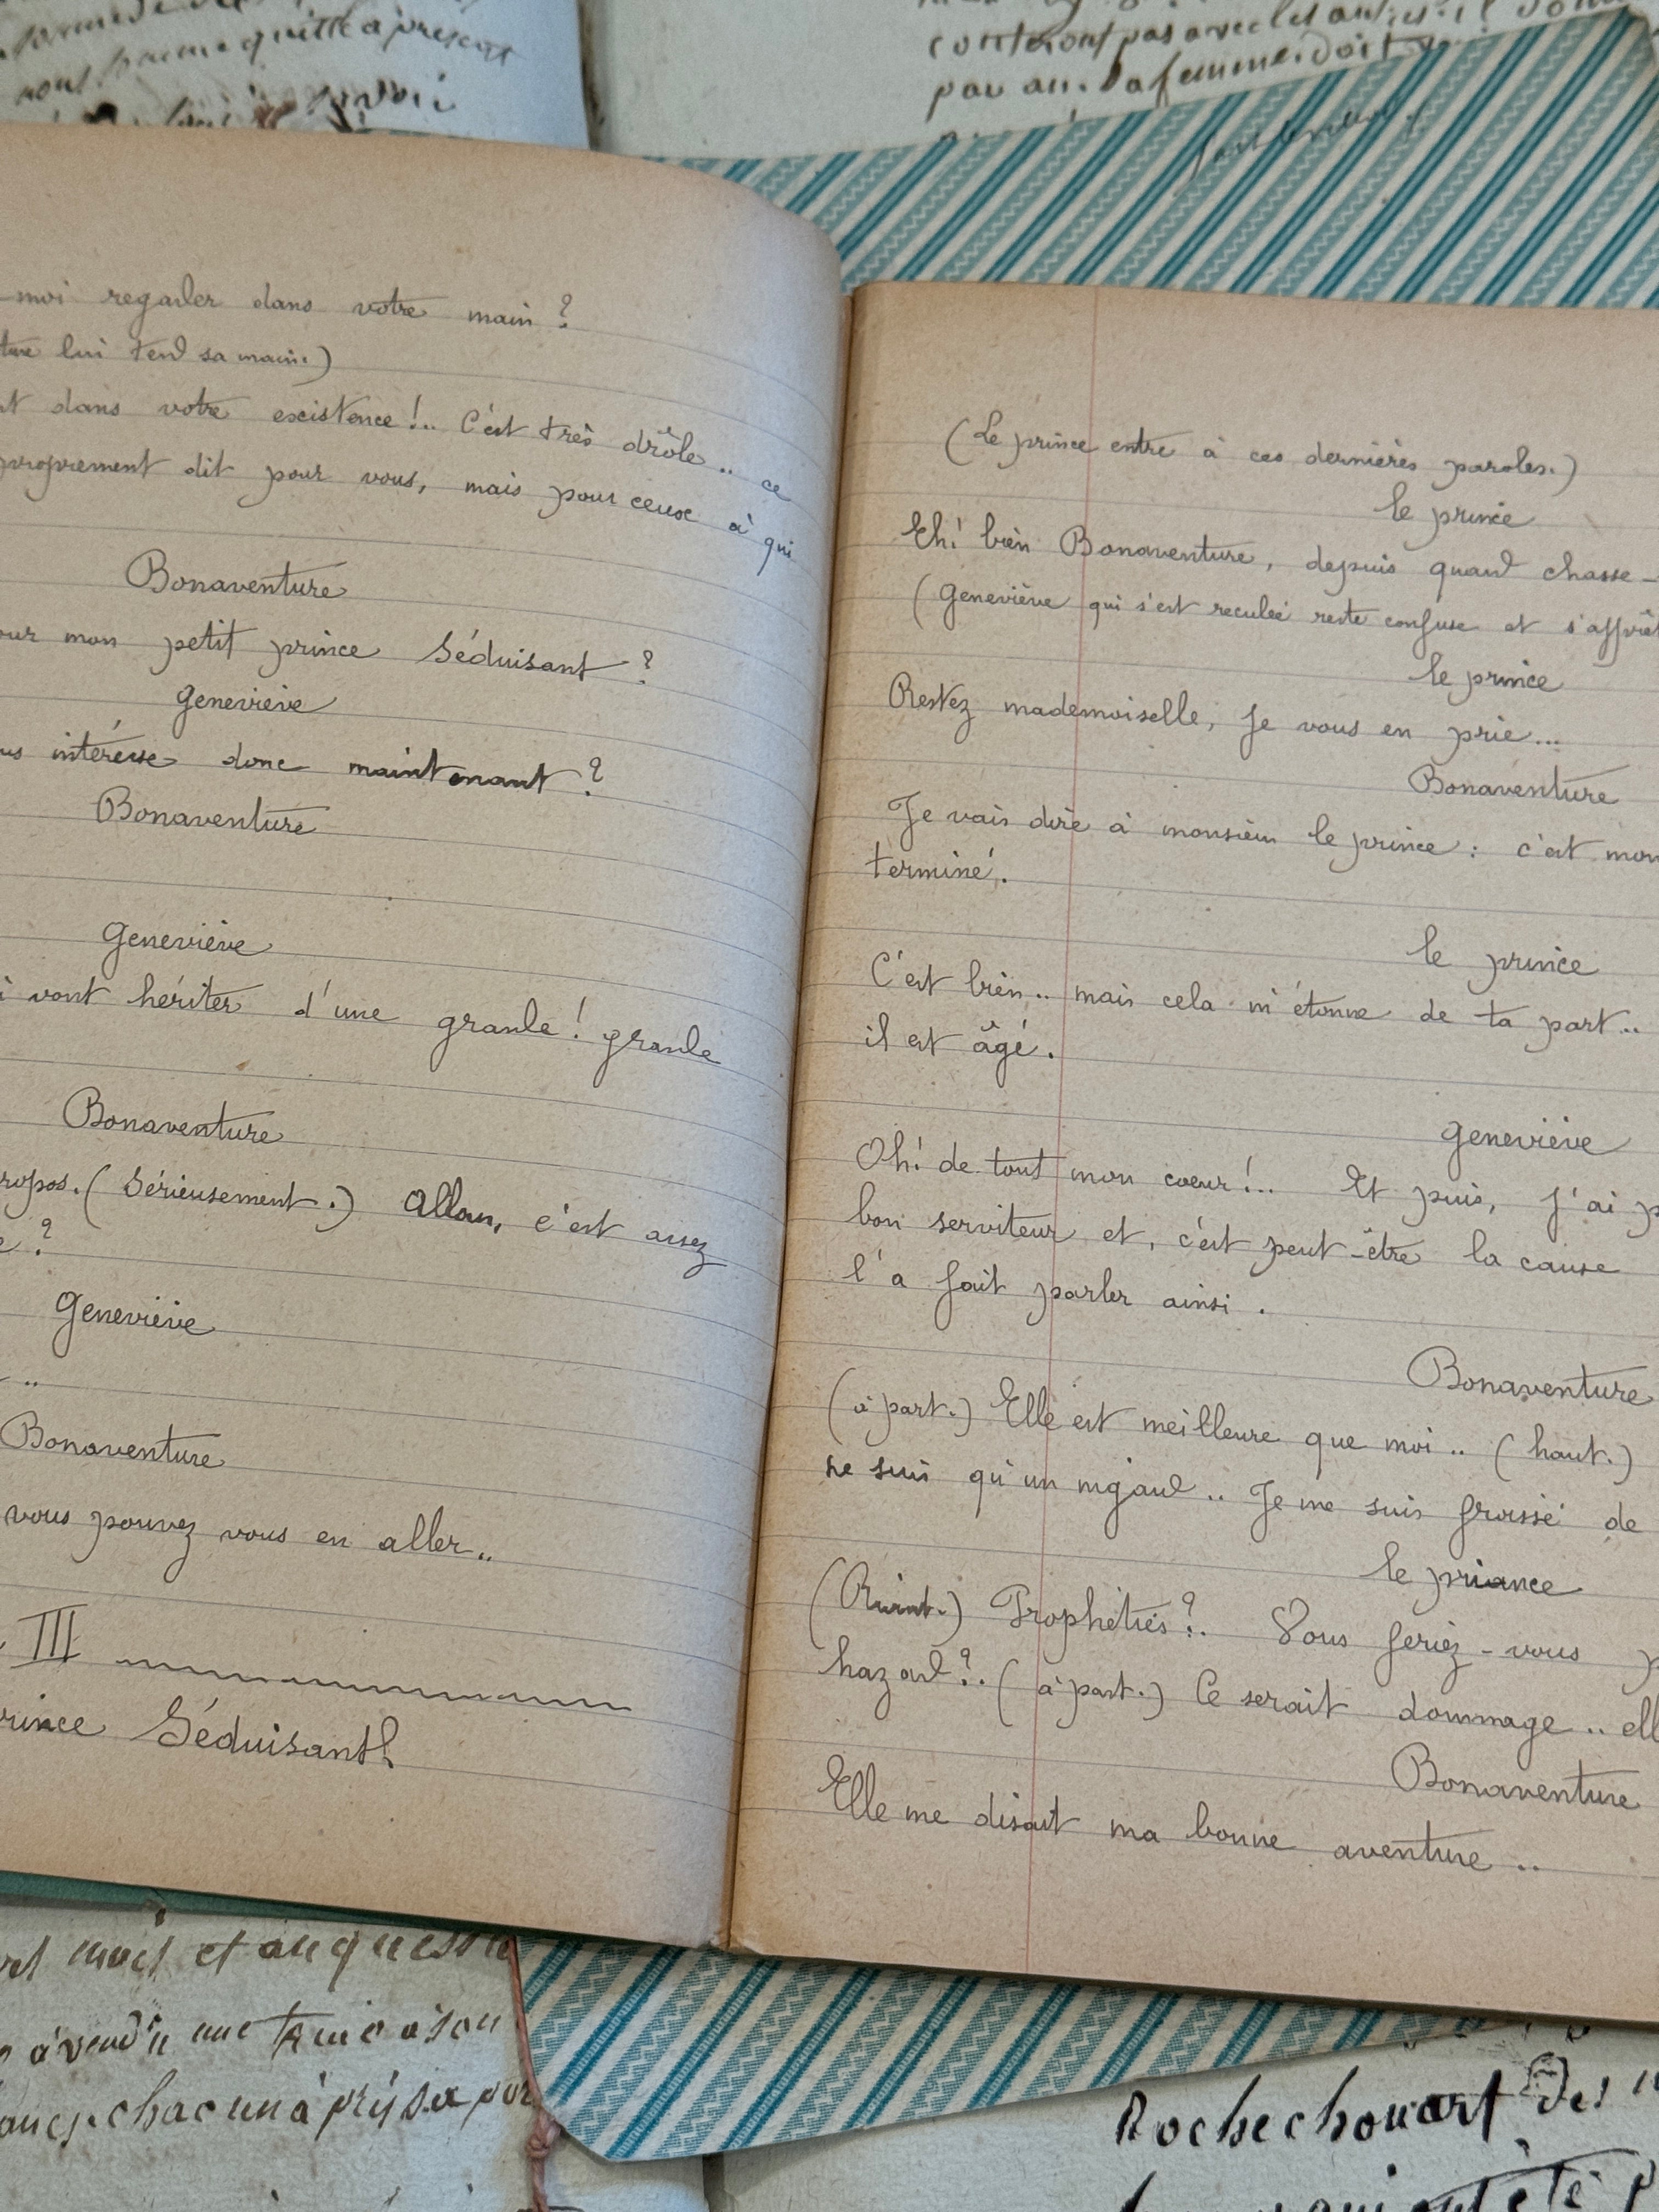 nous
à présent
conteront pas avec les
par an. La femme doit
moi regarder dans votre main ?
lui tend sa main.)
dans votre existence !.. C'est très drôle .. ce
proprement dit pour vous, mais pour ceux à qui
Bonaventure
mon petit prince Séduisant ?
Geneviève
intéresse donc maintenant ?
Bonaventure
Geneviève
vont hériter d'une grande ! grande
Bonaventure
(Sérieusement.) Allons, c'est assez
?
Geneviève
..
Bonaventure
vous pouvez vous en aller..
III
Séduisant
(Le prince entre à ces dernières paroles.)
le prince
Eh! bien Bonaventure, depuis quand chasse-
(Geneviève qui s'est reculée reste confuse et
le prince
Restez mademoiselle, je vous en prie...
Bonaventure
Je vais dire à monsieur le prince : c'est mon
terminé.
le prince
C'est bien.. mais cela m'étonne de ta part..
il est âgé.
Geneviève
Oh! de tout mon coeur!.. Et puis, j'ai
bon serviteur et, c'est peut-être la cause
l'a fait parler ainsi.
Bonaventure
(à part.) Elle est meilleure que moi.. (haut.)
ne suis qu'un nigaud.. Je me suis froissé de
le priance
(Riant.) Prophéties?. Vous feriez-vous
hazard?.. (à part.) Ce serait dommage..
Bonaventure
Elle me disait ma bonne aventure..
mois et
à vendu une
chacun à
Rochechouart Des